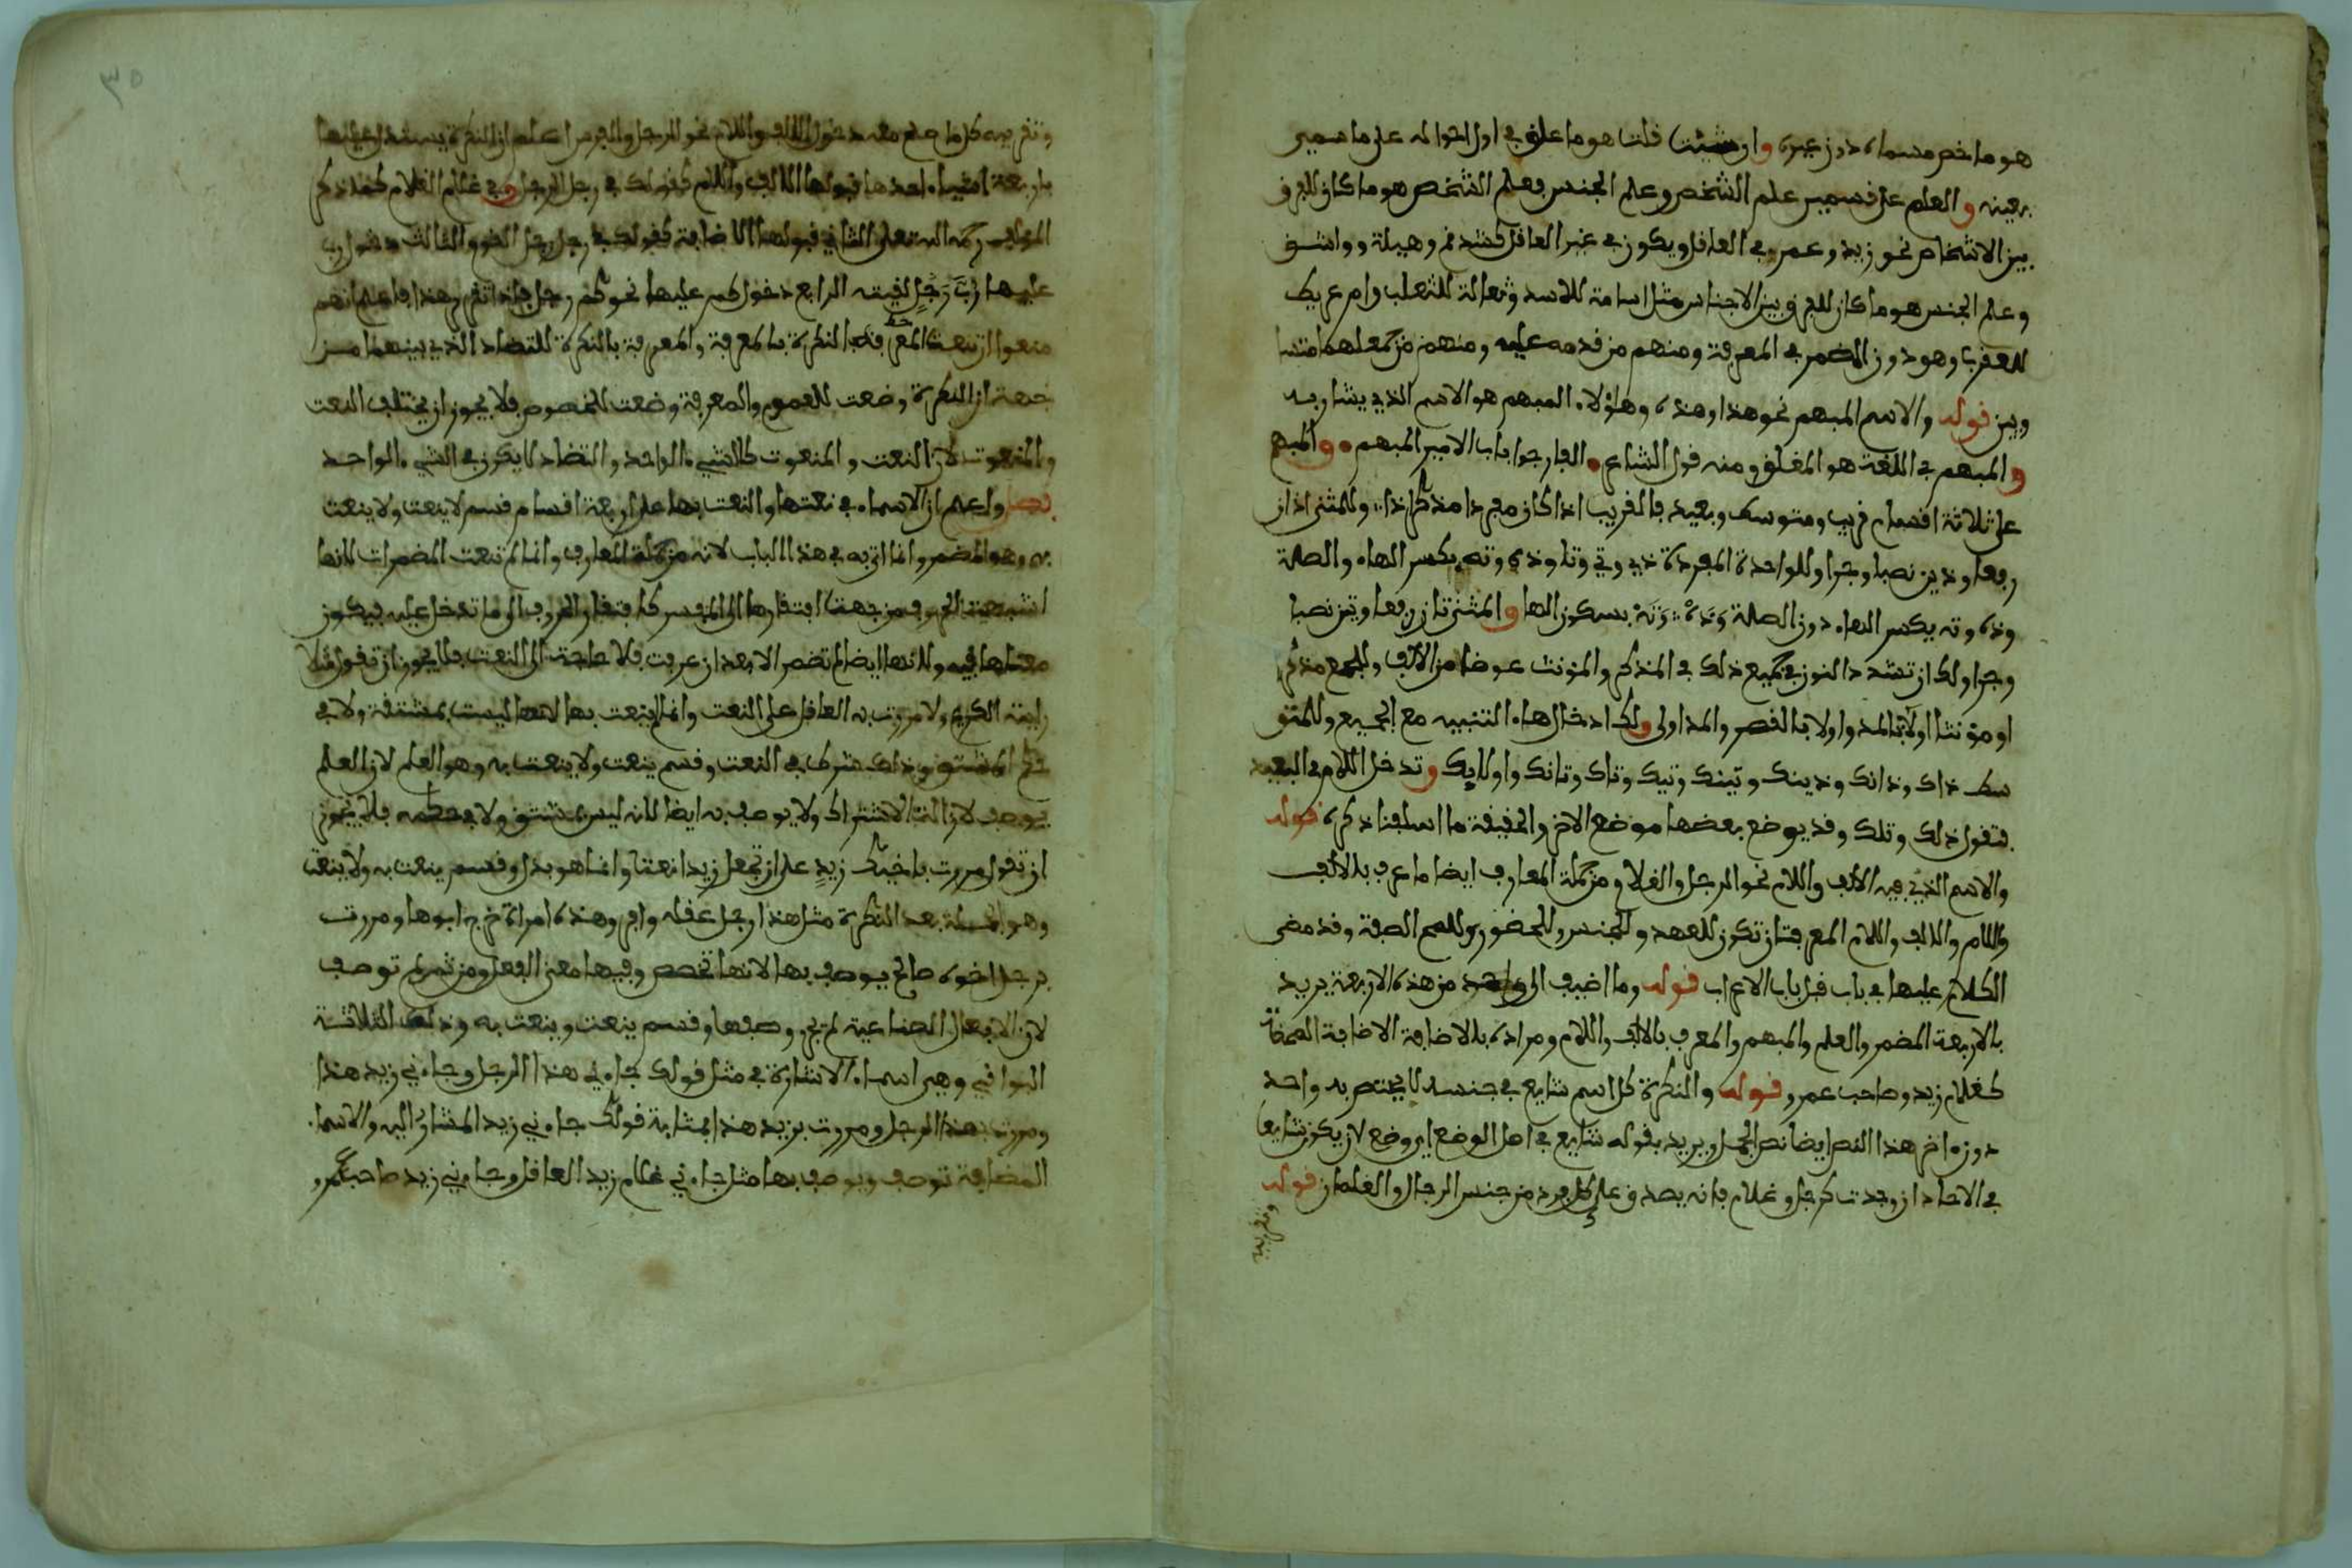 هو ما خص مسماه دون غيره وان شئت قلت هو ما علق في اول احواله على ما سمي
بعينه والعلم على قسمين علم الشخص وعلم الجنس فعلم الشخص هو ما كان للفرق
بين الاشخاص نحو زيد وعمرو في العاقل ويكون في غير العاقل كشدقم وهيلة وواشق
وعلم الجنس هو ما كان للفرق بين الاجناس مثل اسامة للاسد وثعالة للثعلب وام عريط
للعقرب وهو دون المضمر في المعرفة ومنهم من قدمه عليه ومنهم من جعلهما متسا
ويين قوله والاسم المبهم نحو هذا وهذه وهاؤلاء المبهم هو الاسم الذي يشار به
والمبهم في اللغة هو المغلق ومنه قول الشاعر الفارجوا باب الامير المبهم والمبهم
على ثلاثة اقسام قريب ومتوسط وبعيد فالقريب اذا كان مفردا مذكرا ذا وللمثنى اذان
رفعا وذين نصبا وجرا وللواحدة المفردة ذي وتي وتا وذه وته بكسر الهاء والصلة
وذه وته بكسر الهاء دون الصلة وذه وته بسكون الها والمثنى تان رفعا وتين نصبا
وجرا ولك ان تشدد النون في جميع ذلك في المذكر والمونث عوضا من الالف وللجمع مذكرا
او مؤنثا اولاء بالمد واولا بالقصر والمد اولى ولك ادخال هاء التنبيه مع الجميع وللمتو
سط ذاك وذانك وذينك وتينك وتيك وتاك وتانك واولايك وتدخل اللام في البعيد
فتقول ذلك وتلك وقد يوضع بعضها موضع الاخر والحقيقة ما اسلفنا ذكره قوله
والاسم الذي فيه الالف واللام نحو الرجل والغلام ومن جملة المعارف ايضا ما عرف بالالف
واللام والالف واللام المعرفتان تكون للعهد وللجنس وللحضور وللمح الصفة وقد مضى
الكلام عليها في باب قبل باب الاعراب قوله وما اضيف الى واحد من هذه الاربعة يريد
بالاربعة المضمر والعلم والمبهم والمعرف بالالف واللام ومراده بالاضافة الاضافة المحضة
كغلام زيد وصاحب عمرو قوله والنكرة كل اسم شايع في جنسه لا يختص به واحد
دون اخر هذا النص ايضا نص الجمل ويريد بقوله شايع في اصل الوضع اي وضع لان يكون شايعا
في الاحاد ان وجدت كرجل وغلام فانه يصدق على كل فرد من جنس الرجال والغلمان قوله
وتقريبه كل ما صلح معه دخول الالف واللام نحو الرجل والفرس اعلم ان النكرة يستدل عليها
باربعة اشياء احدها قبولها الالف واللام كقولك في رجل الرجل وفي غلام الغلام كما ذكر
المولف رحمه الله تعلى الثاني قبولها الاضافة كقولك في رجل رجل القوم الثالث دخول رب
عليها رب رجل لقيته الرابع دخول كم عليها نحو كم رجل فاذا تقرر هذا فاعلم انهم
منعوا ان تنعت النكرة بالمعرفة والمعرفة بالنكرة للتضاد الذي بينهما من
جهة ان النكرة وضعت للعموم والمعرفة وضعت للخصوص فلا يجوز ان يختلف النعت
والمنعوت لان النعت والمنعوت كالشيء الواحد والتضاد لا يكون في الشيء الواحد
فصل واعلم ان الاسماء في نعتها والنعت بها على اربعة اقسام قسم لا ينعت ولا ينعت
به وهو المضمر وانما اتى به في هذا الباب لانه من جملة المعارف وانما لم تنعت المضمرات لانها
اشبهت الحروف من جهة افتقارها الى المفسر كافتقار الحروف الى ما تدخل عليه فيكون
معناها فيه ولانها ايضا لم تضمر الا بعد ان عرفت فلا حاجة الى النعت فلا يجوز ان تقول مثلا
رايته الكريم ولا مررت به العاقل على النعت وانما لم ينعت بها لانها ليست بمشتقة ولا في
حكم المشتق وذلك شرط في النعت وقسم ينعت ولا ينعت به وهو العلم لان العلم
يوصف لازالة الاشتراك ولا يوصف به ايضا لانه ليس بمشتق ولا في حكمه فلا يجوز
ان تقول مررت باخيك زيد على ان تجعل زيدا نعتا وانما هو بدل وقسم ينعت به ولا ينعت
وهو الجملة بعد النكرة مثل هذا رجل عقله وافر وهذه امراة خرج ابوها ومررت
برجل اخوه صالح يوصف بها لانها تخصص وفيها معنى الفعل ومن ثم لم توصف
لان الافعال الصناعية لم يجز وصفها وقسم ينعت وينعت به وذلك الثلاثة
البواقي وهي اسماء الاشارة في مثل قولك جاءني هذا الرجل وجاءني زيد هذا
ومررت بهذا الرجل ومررت بزيد هذا بمثابة قولك جاءني زيد المشار اليه والاسماء
المضافة توصف ويوصف بها مثل جاءني غلام زيد العاقل وجاءني زيد صاحب عمرو
٣٥